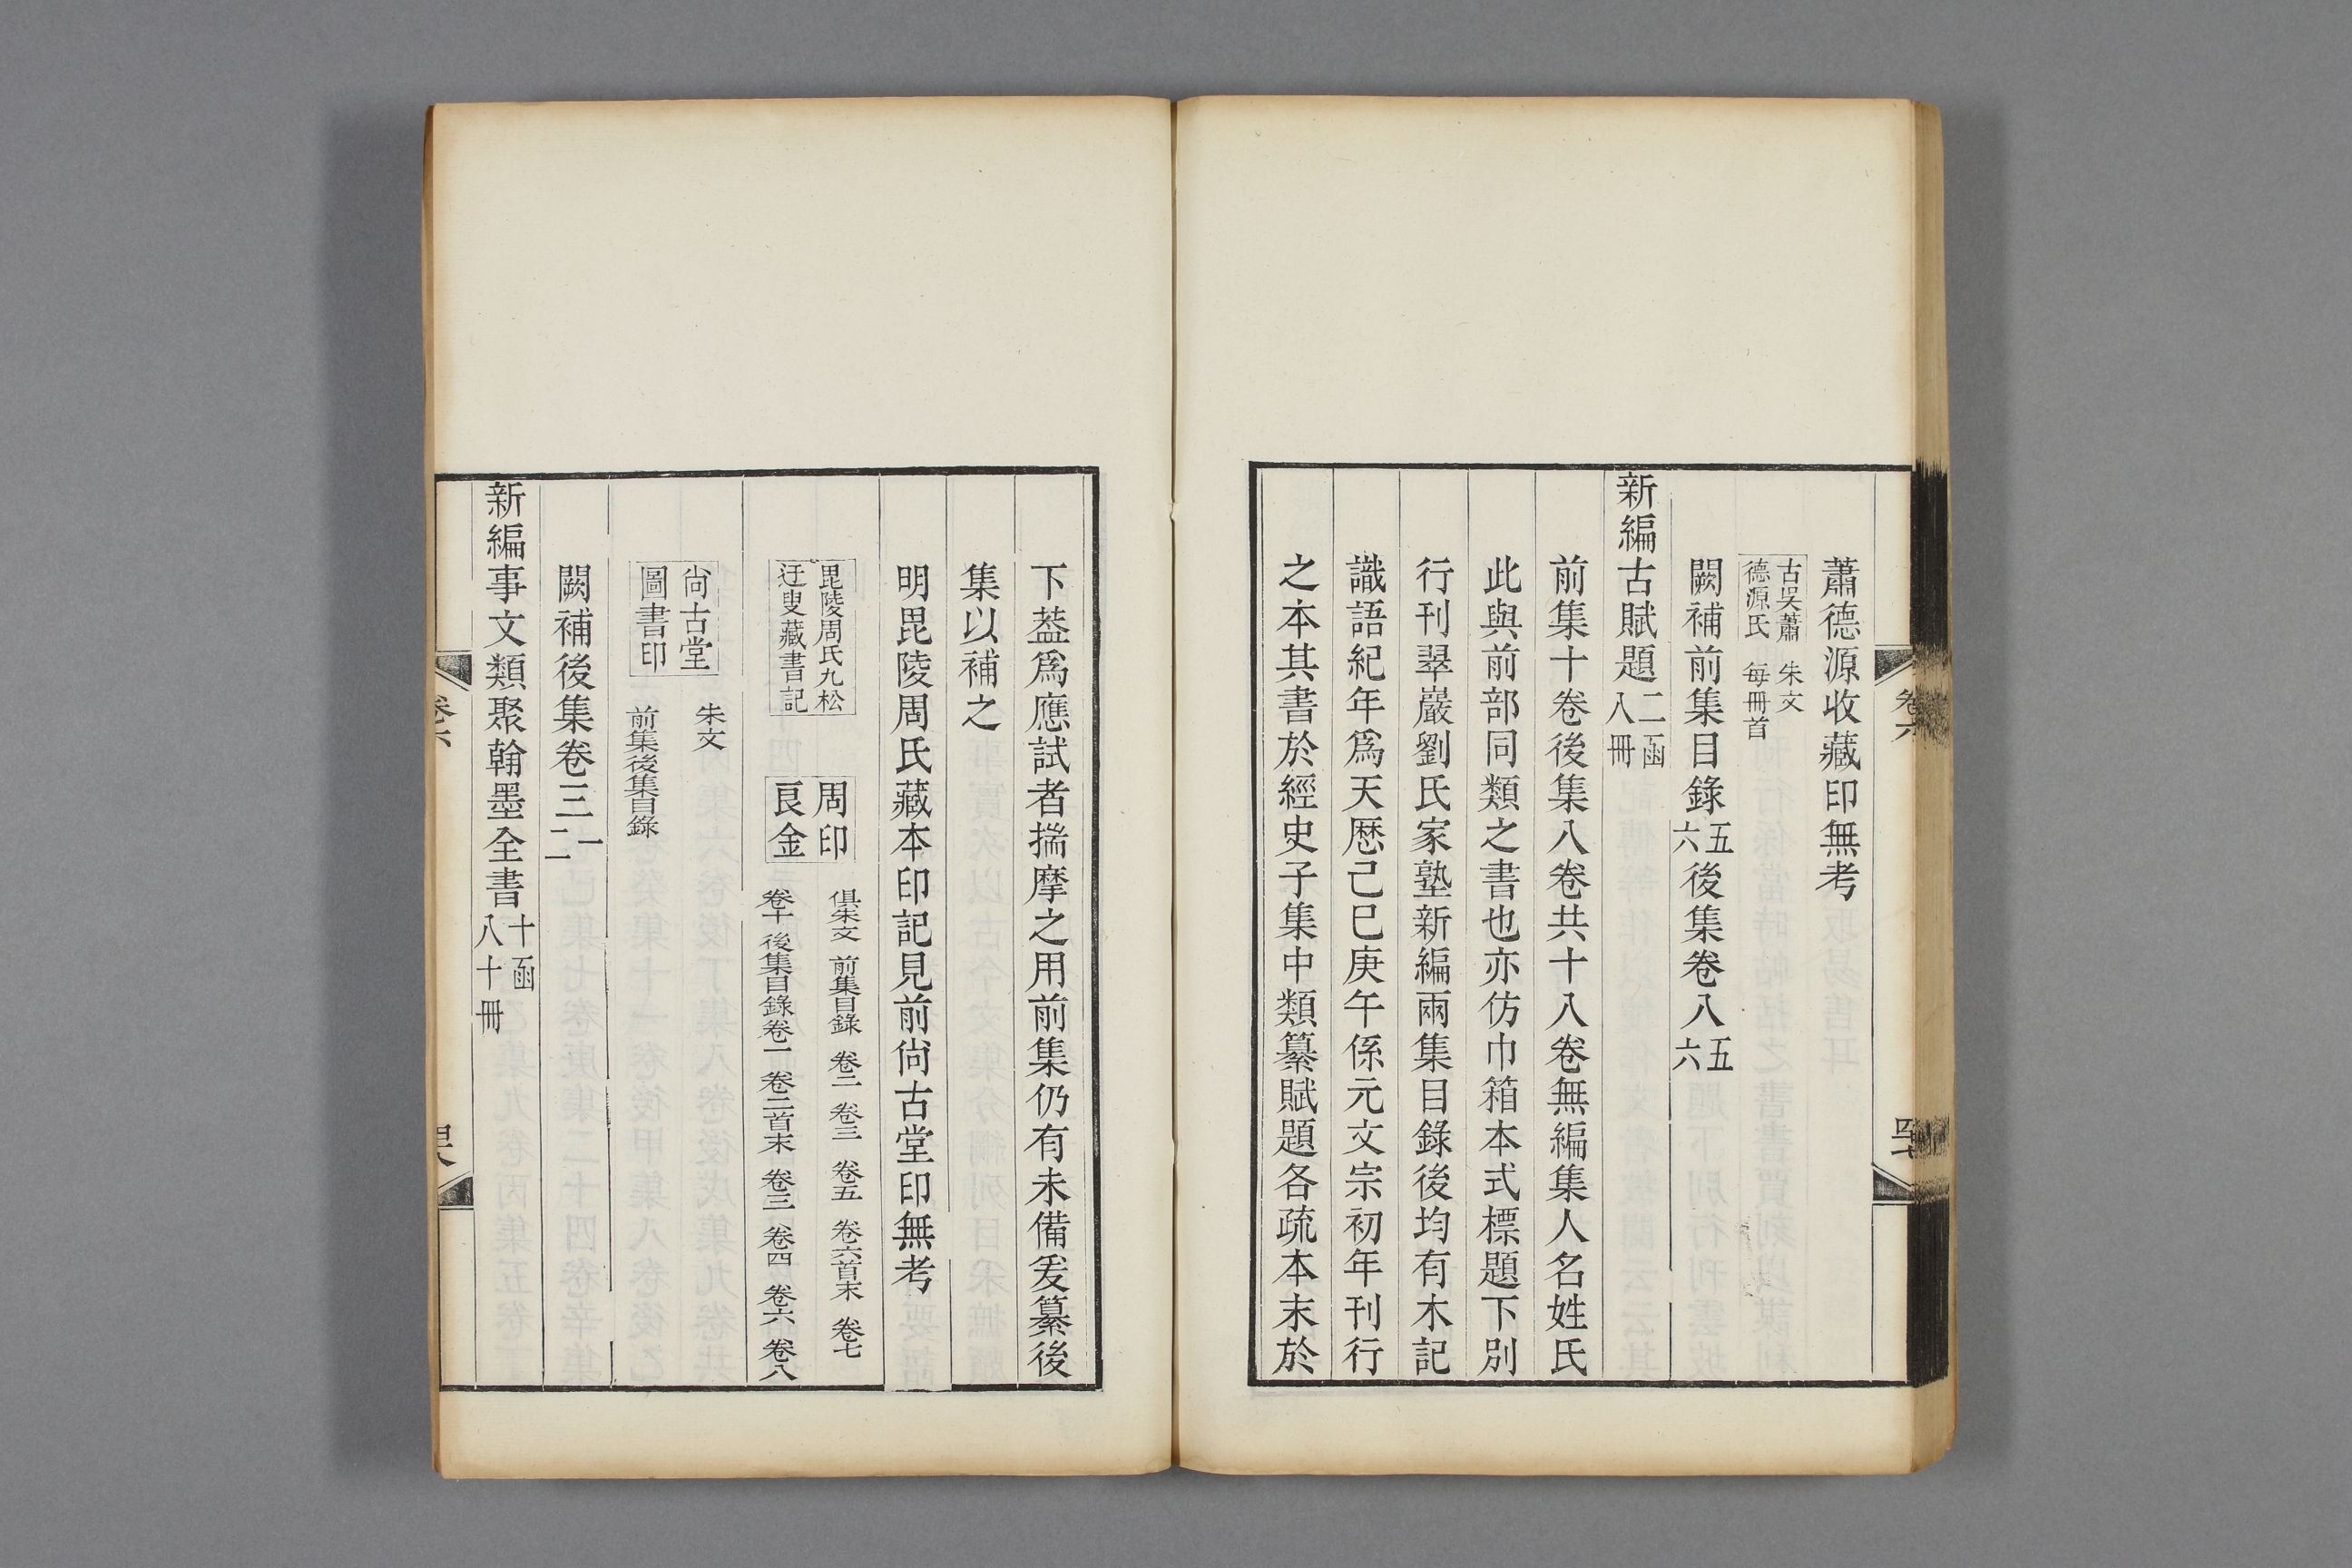 蕭德源收藏印無考
古吳蕭德源氏 朱文每冊首
闕補前集目錄五六後集卷八五六
新編古賦題二函八冊
前集十卷後集八卷共十八卷無編集人名姓氏
此與前部同類之書也亦仿巾箱本式標題下別
行刊翠巖劉氏家塾新編兩集目錄後均有木記
識語紀年爲天厯己巳庚午係元文宗初年刊行
之本其書於經史子集中類纂賦題各疏本末於
卷六
下葢爲應試者揣摩之用前集仍有未備爰纂後
集以補之
明毘陵周氏藏本印記見前尙古堂印無考
毘陵周氏九松迂叟藏書記 周印良金 俱朱文 前集目錄 卷二 卷三 卷五 卷六首末 卷七
卷十 後集目錄卷一 卷二首末 卷三 卷四 卷六 卷八
尙古堂圖書印 朱文 前集後集目錄
闕補後集卷三一二
新編事文類聚翰墨全書十函八十冊
卷六